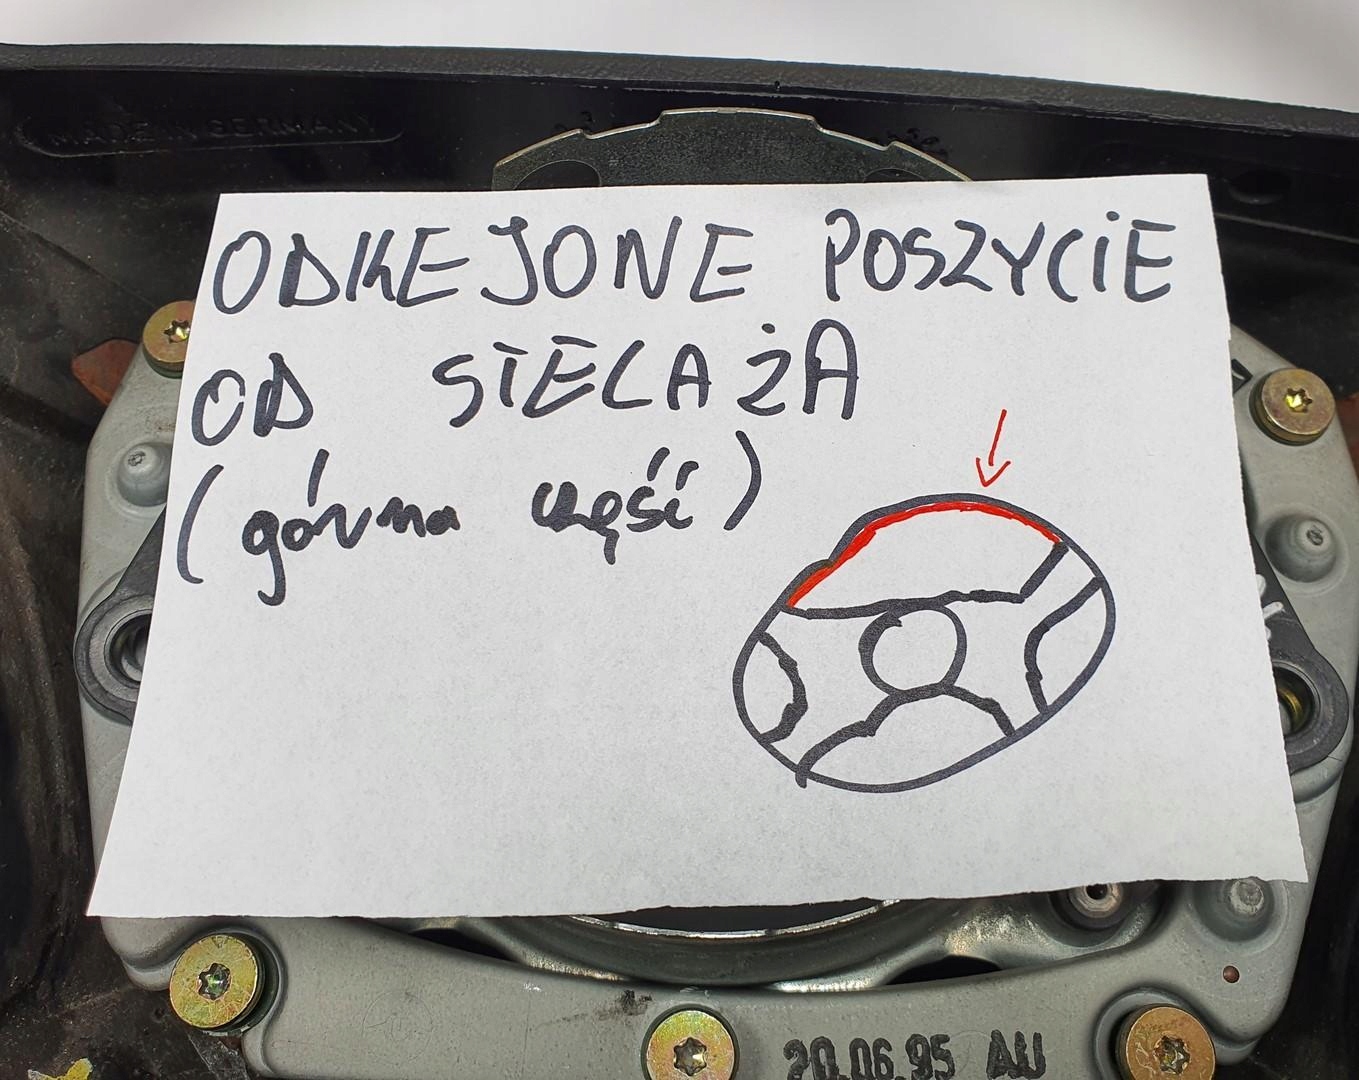 MADE IN GERMANY
ODKLEJONE POSZYCIE
OD STELAŻA
(górna część)
20.06.95 AU